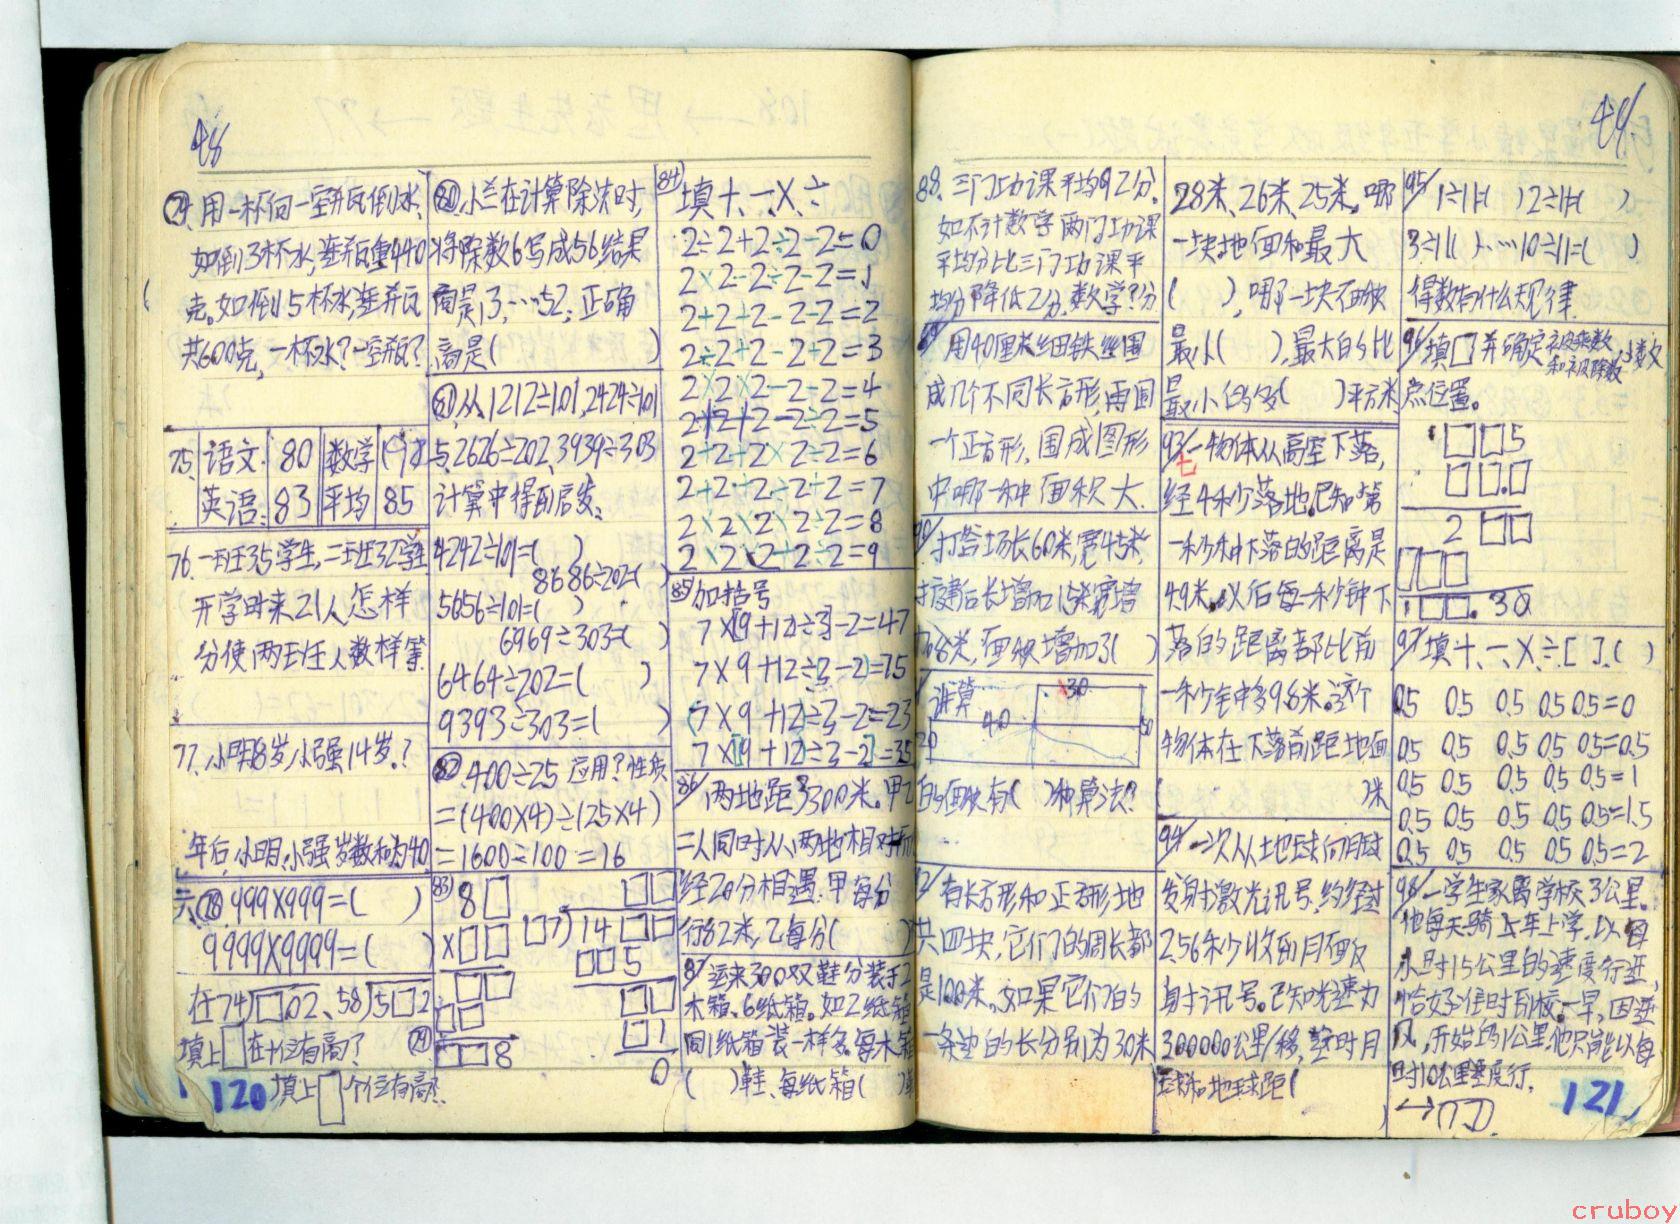 48
74. 用一杯向一空瓶倒水,
如倒3杯水,连瓶重440
克。如倒5杯水,连瓶
共600克,一杯水?一空瓶?
75. 语文: 80 数学 ( )
英语: 83 平均 85
76. 一班35学生,二班32学生
开学时来21人怎样
分使两班人数样等
77. 小明8岁小强14岁.?
年后,小明,小强岁数和为40
78 999×999=( )
9999×9999=( )
在74)□02、58)5□2
填上□在十位有商? 79
填上□个位有商?
120
80. 小兰在计算除法时,
将除数6写成56,结果
商是13,……52,正确
商是( )
81 从1212÷101,2424÷101
2626÷202,3939÷303
计算中得到启发:
4242÷101=( )
8686÷202=( )
5656÷101=( )
6969÷303=( )
6464÷202=( )
9393÷303=( )
82 400÷25 应用?性质
=(400×4)÷(25×4)
=1600÷100=16
83) 8□
×□□
□□
□□
□□□8
□7)14□□
□□5
□□
□1
0
84) 填+、-、×、÷
2÷2+2÷2-2=0
2×2-2÷2-2=1
2+2+2-2-2=2
2÷2+2÷2+2=3
2×2×2-2-2=4
2+2+2-2÷2=5
2+2+2×2÷2=6
2+2+2+2÷2=7
2×2×2×2÷2=8
2×2×2+2÷2=9
85 加括号
7×[9+12÷3]-2=47
7×9+12÷(3-2)=75
(7×9+12)÷3-2=23
7×[(9+12)÷3-2]=35
86/ 两地距3300米。甲乙
二人同时从两地相对而
经20分相遇:甲每分
行82米,乙每分( )
87/ 运来300双鞋分装于2
木箱、6纸箱。如2纸箱
同1纸箱装一样多.每木箱
( )鞋、每纸箱( )
49
88. 三门功课平均92分.
如不计数学 两门功课
平均分比三门功课平
均分降低2分.数学?分
89 用40厘米细铁丝围
成几个不同长方形,再围
一个正方形,围成图形
中哪一种面积大.
90/ 打谷场长60米,宽45米,
扩建后长增加15米宽增
加8米,面积增加了( )
计算
30
40
20
50
的面积有( )种算法?
92/ 有长方形和正方形地
共四块,它们的周长都
是100米.如果它们的
一条边的长分别为30米
28米、26米、25米,哪
一块地面积最大
( ),哪一块面积
最小( ),最大的比
最小的多( )平方米
93/ 一物体从高空下落,
经4秒落地.已知第
一秒钟下落的距离是
49米,以后每一秒钟下
落的距离都比前
一秒钟中多98米.这个
物体在下落前距地面
( )米
94/ 一次从地球向月球
发射激光讯号,约经过
256秒收到月面反
射讯号。已知光速为
300000公里/秒,这时月
球和地球距(
)
95/ 1÷11=( ) 2÷11=( )
3÷11( )…10÷11=( )
得数有什么规律.
96/ 填□并确定被乘数
和被除数小数
点位置。
□□5
□□.□
2□□
□□□
□□.30
97/ 填+、-、×、÷[ ].( )
0.5 0.5 0.5 0.5 0.5=0
0.5 0.5 0.5 0.5 0.5=0.5
0.5 0.5 0.5 0.5 0.5=1
0.5 0.5 0.5 0.5 0.5=1.5
0.5 0.5 0.5 0.5 0.5=2
98/ 一学生家离学校3公里.
他每天骑上车上学,以每
小时15公里的速度行进,
恰好准时到校.一早,因逆
风,开始的1公里,他只能以每
时10公里速度行.
121
cruboy